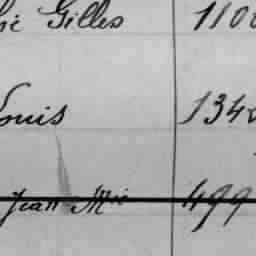 Gilles 110
Louis 134
Jean Mie 499